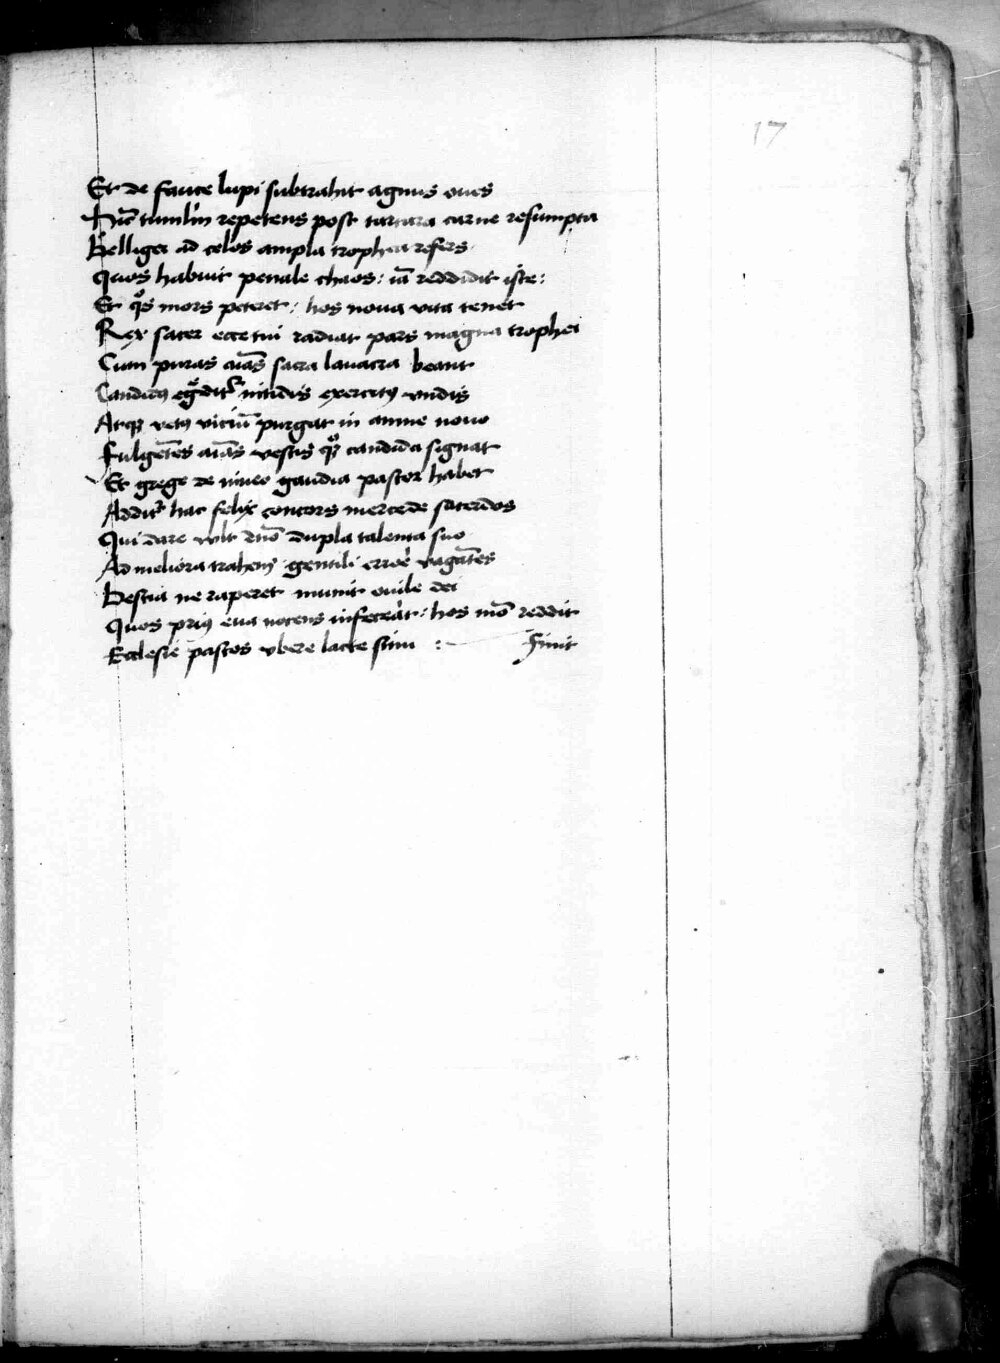 17
Et de fauce lupi subtrahit agnus oues
Hīc tumlūm repetens post tartara carne resumpta
Belliger ad celos ampla trophea refers
Quos habuit penale chaos: iā reddidit iste:
Et qͦs mors peteret: hos noua vita tenet
Rex sacer ecce tui radiat pars magna trophei
Cum puras aīas sacra lauacra beant
Candidꝯ egͣditᷣ nitidis exercitꝯ vndis
Atqꝫ vetꝯ viciū purgat in amne nouo
Fulgētes aīas vestis qͦꝫ candida signat
Et grege de niueo gaudia pastor habet
Additᷣ hac felix concors mercede sacerdos
Qui dare vult dn̄o dupla talenta suo
Ad meliora trahens gentili errore vagātes
Bestia ne raperet munit ouile dei
Quos priꝯ eua nocens infecerat: hos mō reddit
Ecclesie pastos vbere lacte sinu :~ Finit